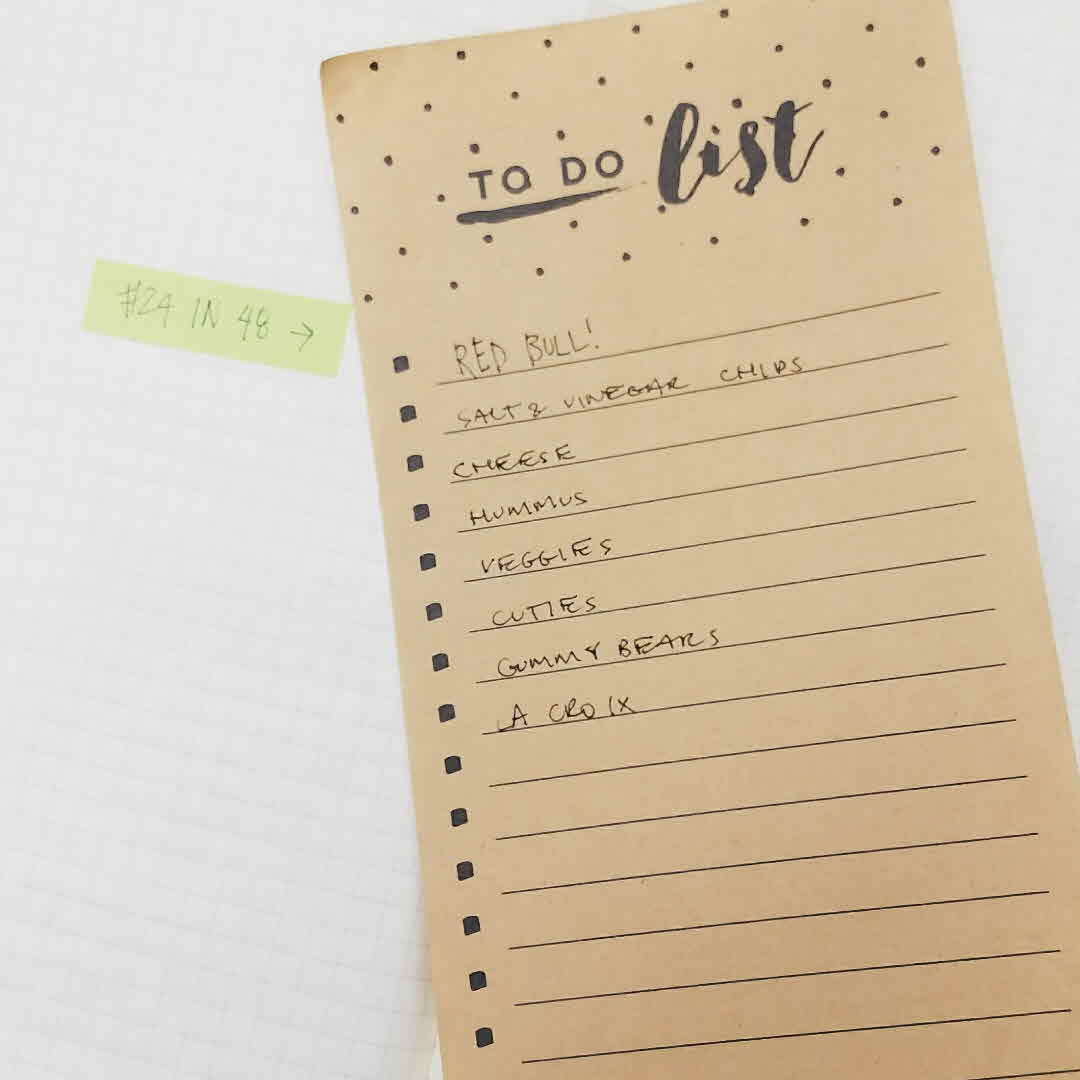 TO DO list
#24 IN 48 →
RED BULL!
SALT & VINEGAR CHIPS
CHEESE
HUMMUS
VEGGIES
CUTIES
GUMMY BEARS
LA CROIX